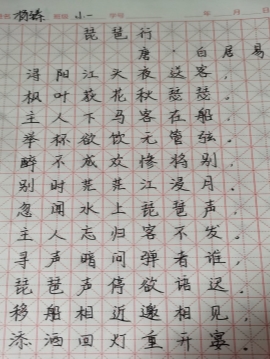 班级 小一 学号 年 月 日
琵琶行
唐·白居易
浔阳江头夜送客，
枫叶荻花秋瑟瑟。
主人下马客在船，
举杯欲饮无管弦。
醉不成欢惨将别，
别时茫茫江浸月。
忽闻水上琵琶声，
主人忘归客不发。
寻声暗问弹者谁，
琵琶声停欲语迟。
移船相近邀相见，
添酒回灯重开宴。